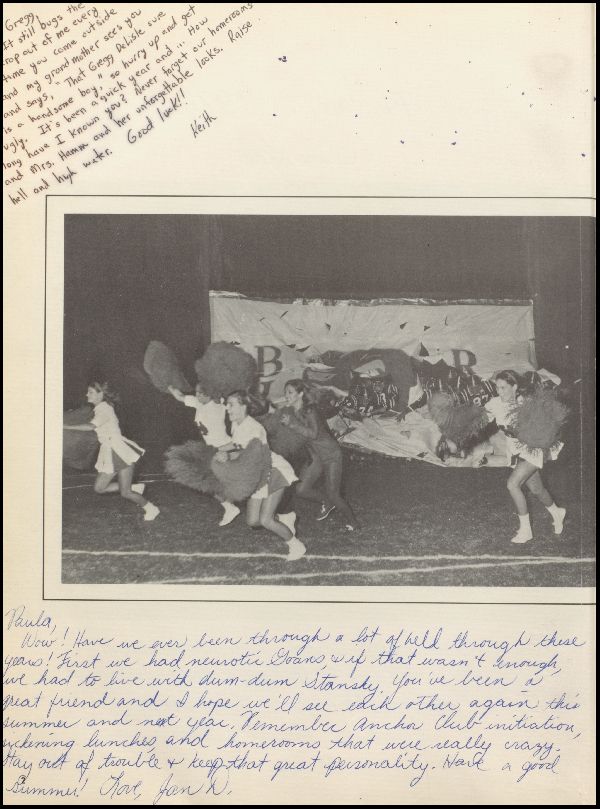 Gregg,
It still bugs the
crap out of me every
time you come outside
and my grandmother sees you
and says, "That Gregg DeLisle sure
is a handsome boy," so hurry up and get
ugly. It's been a quick year and ... How
long have I known you? Never forget our homerooms
and Mrs. Hamm and her unforgettable looks. Raise
hell and high water. Good luck!!
Keith
B B
34
Paula,
Wow! Have we ever been through a lot of hell through these
years! First we had neurotic Goans, & if that wasn't enough,
we had to live with dum-dum Stansky. You've been a
great friend and I hope we'll see each other again this
summer and next year. Remember Anchor Club initiation,
sickening lunches, and homerooms that were really crazy.
Stay out of trouble & keep that great personality. Have a good
Summer! Love, Jan D.